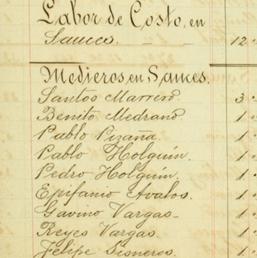 Labor de Costo, en
Sauces. 12
Medieros, en Sauces.
Santos Marrero 3
Benito Medrano 1
Pablo Pizaña 1
Pablo Holguin. 1
Pedro Holguin. 1
Epifanio Avalos. 1
Gavino Vargas 1
Reyes Vargas. 1
Felipe Sisneros. 1